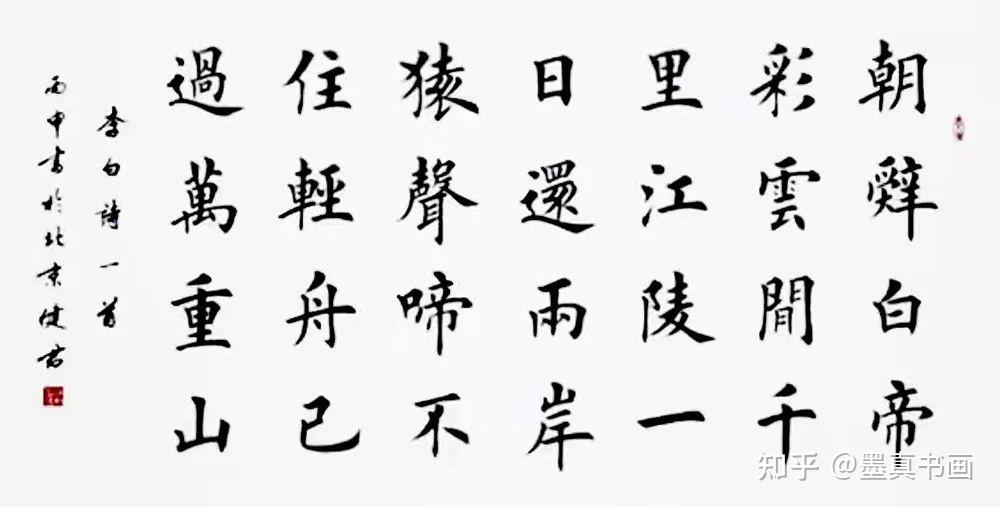 朝辭白帝
彩雲間千
里江陵一
日還兩岸
猿聲啼不
住輕舟已
過萬重山
李白詩一首
丙申書於北京健君
知乎 @墨真书画